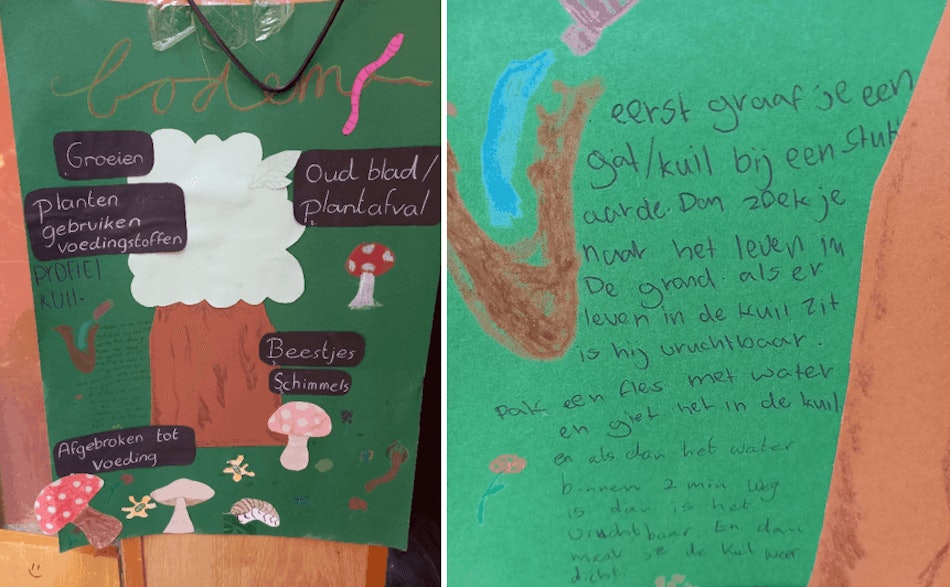 bodem
Groeien
Oud blad/
plantafval
planten
gebruiken
voedingstoffen
PROFIEL
KUIL.
Beestjes
Schimmels
Afgebroken tot
voeding
eerst graaf je een
gat/kuil bij een stuk
aarde. Dan zoek je
naar het leven in
De grond. als er
leven in de kuil zit
is hij vruchtbaar.
pak een fles met water
en giet het in de kuil
en als dan het water
binnen 2 min weg
is dan is het
vruchtbaar. En dan
maak je de kuil weer
dicht.